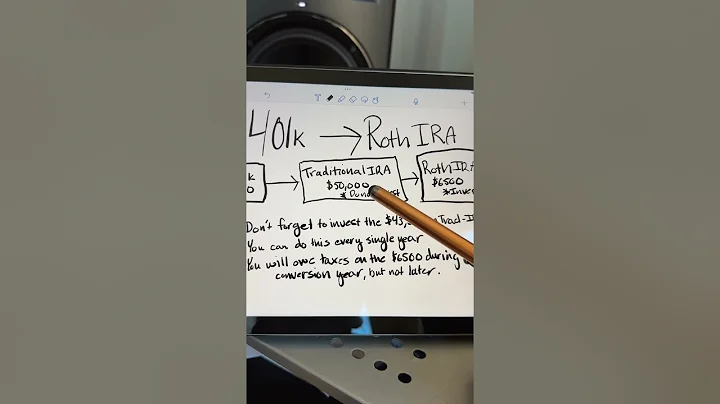 401k → Roth IRA
k
0
Traditional IRA
$50,000
Roth IRA
$6500
Don't forget to invest the $43,
You can do this every single year
You will owe taxes on the $6500 during
conversion year, but not later.